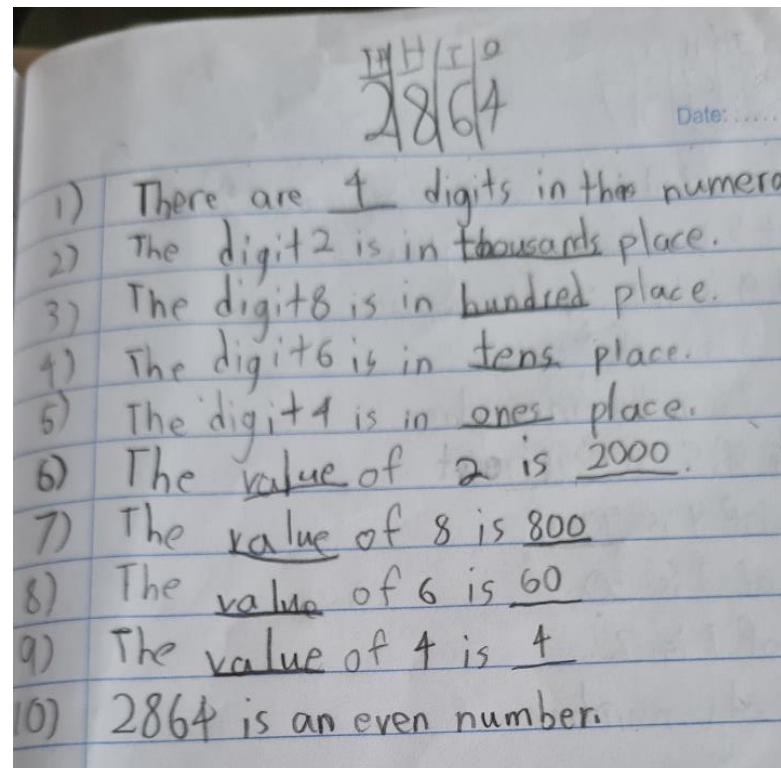 TH H T O
2 8 6 4
Date: .....
1) There are 4 digits in this numera
2) The digit 2 is in thousands place.
3) The digit 8 is in hundred place.
4) The digit 6 is in tens place.
5) The digit 4 is in ones place.
6) The value of 2 is 2000.
7) The value of 8 is 800
8) The value of 6 is 60
9) The value of 4 is 4
10) 2864 is an even number.